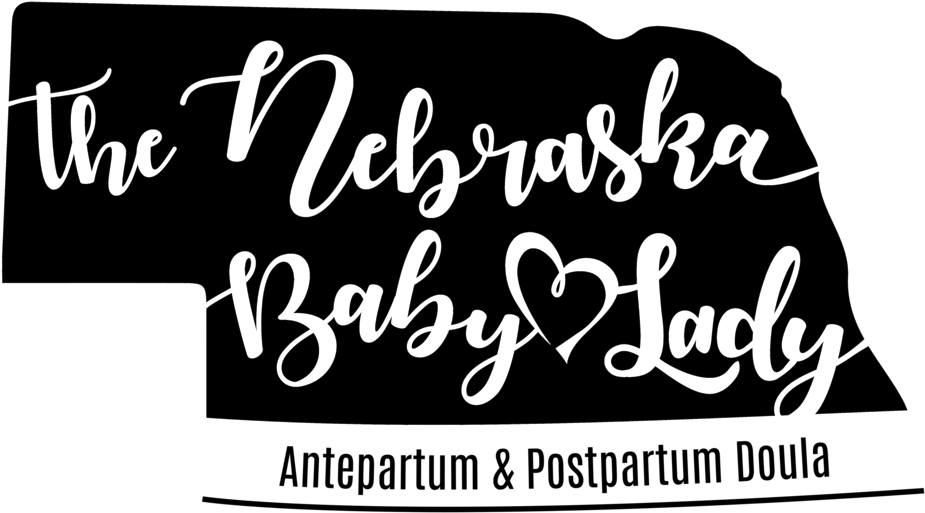 the Nebraska
Baby Lady
Antepartum & Postpartum Doula